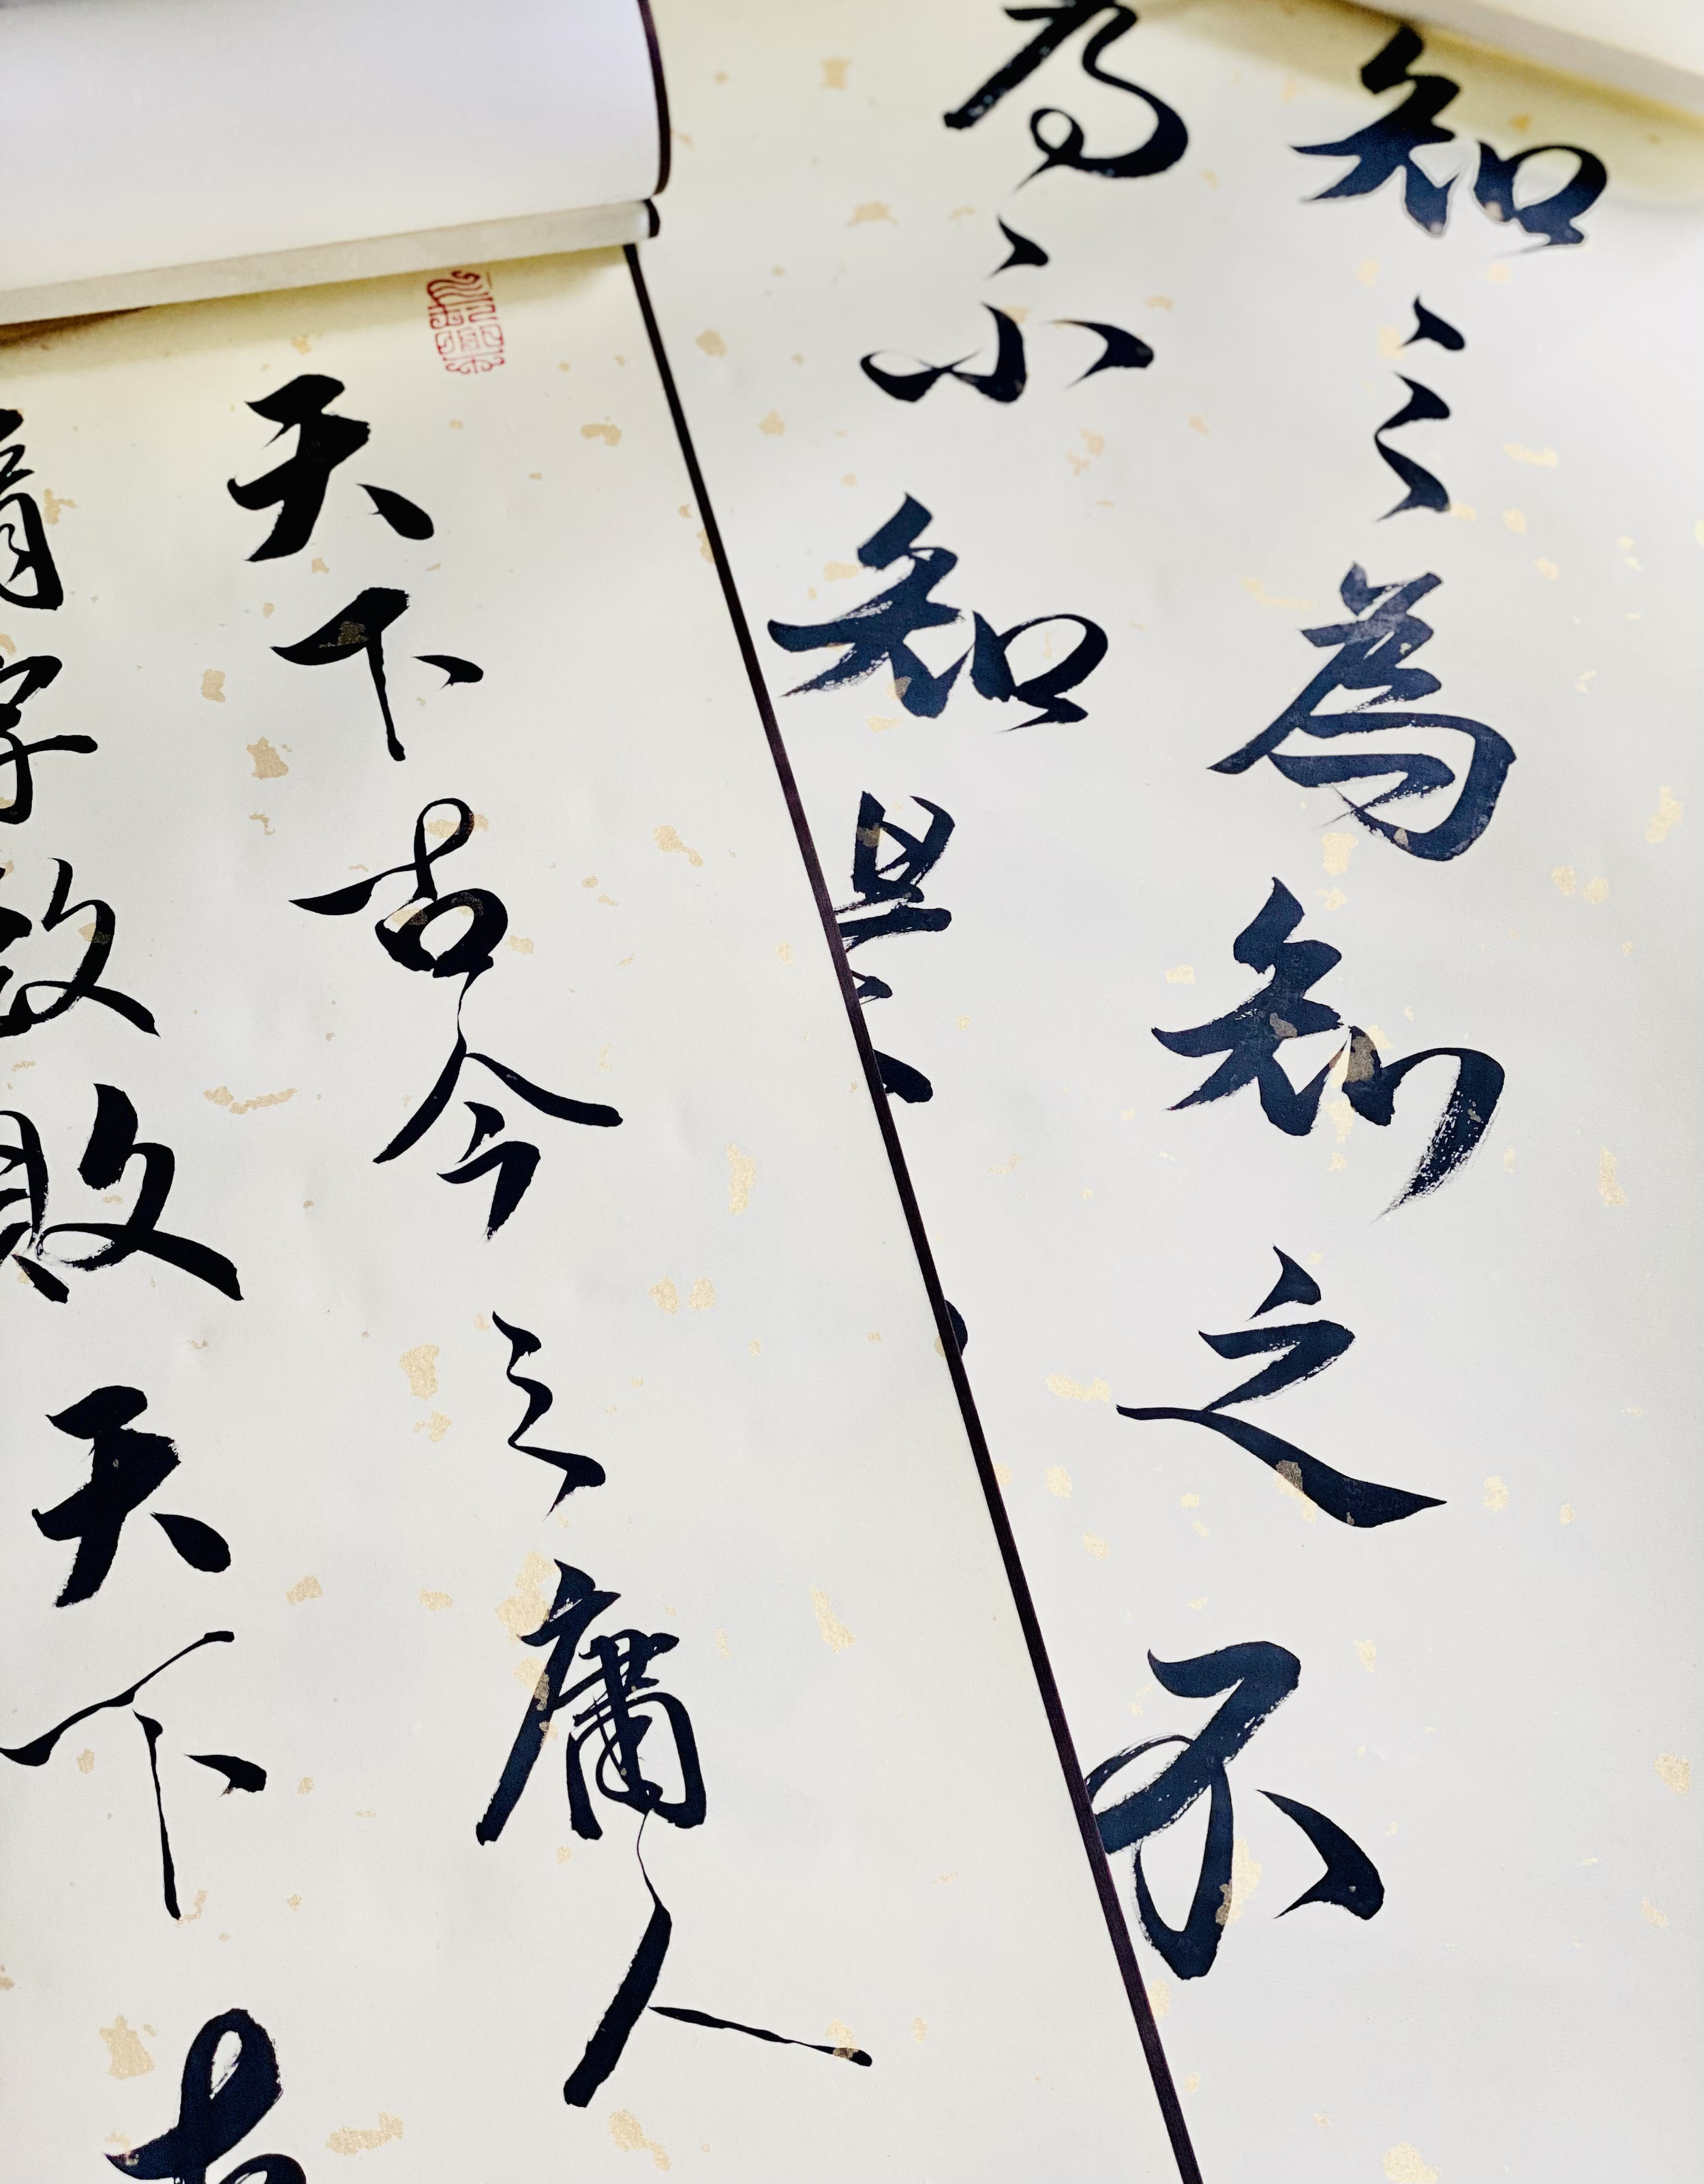 知之為知之不
為不知是
天下古今之庸人
惰字致敗天下古